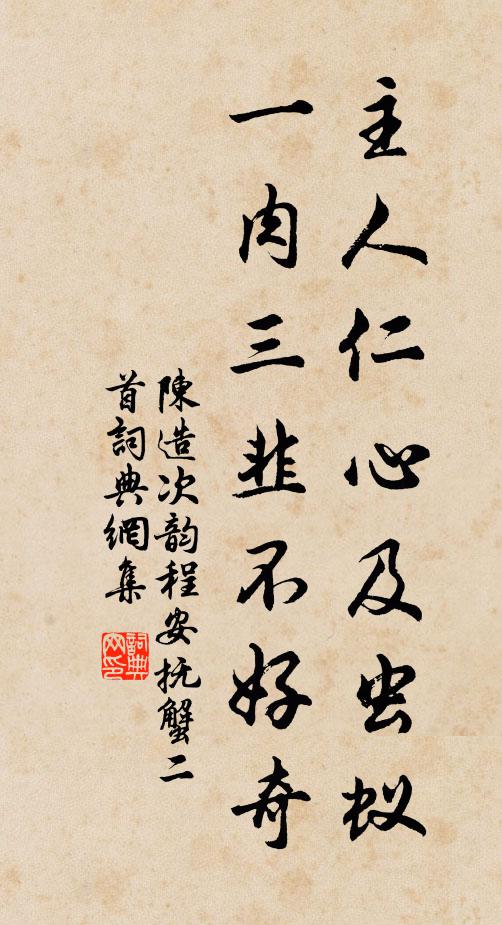 主人仁心及虫蚁
一肉三韭不好奇
陳造次韵程安抚蟹二
首詞典網集
詞典網印